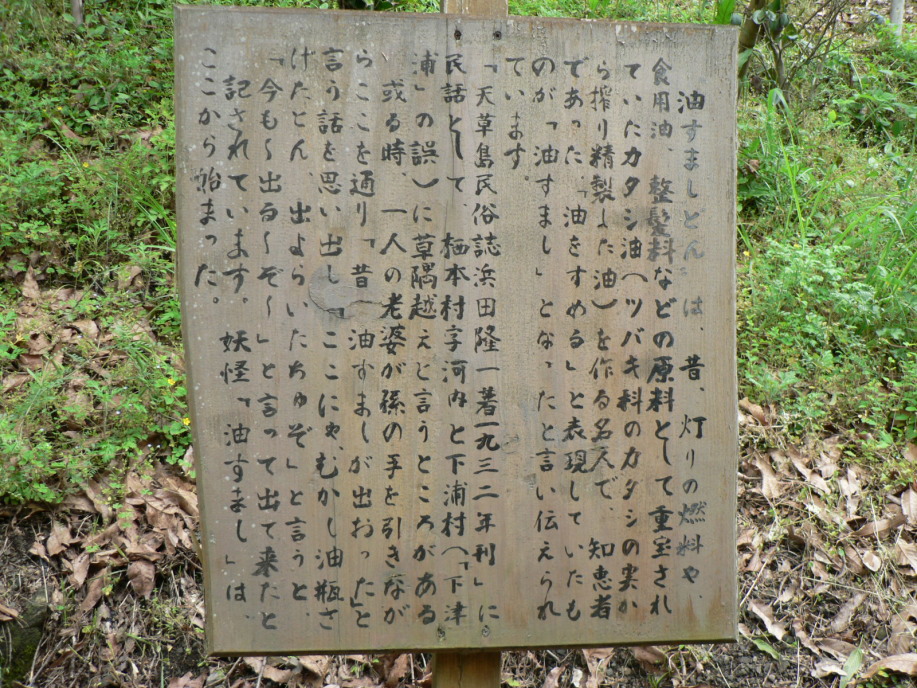 油すましどん」は、昔、灯りの燃料や、
食用油、整髪料などの原料として重宝され
ていたカタシ油(ツバキ科のカタシの実か
ら搾り精製した油)を作る名人で、知恵者
であった。「油をすめる」と表現していたも
のが「油すまし」となったと言い伝えられ
ています。
「天草島民俗誌浜田隆一著一九三二年刊」に
民話として、栖本村字河内と下浦村(「下津
浦」の誤)に草隅越えと言うところがある
或る時、一人の老婆が孫の手を引きながが
らここを通り「昔、油すましが出おった」と
言う話を思い出し「ここにゃ、むかし油瓶さ
げたとん出よらいたちゅぞ」と言うと
「今も〜出る〜ぞ〜」と言って出て来たと
記されています。妖怪「油すまし」は、
ここから始まった。